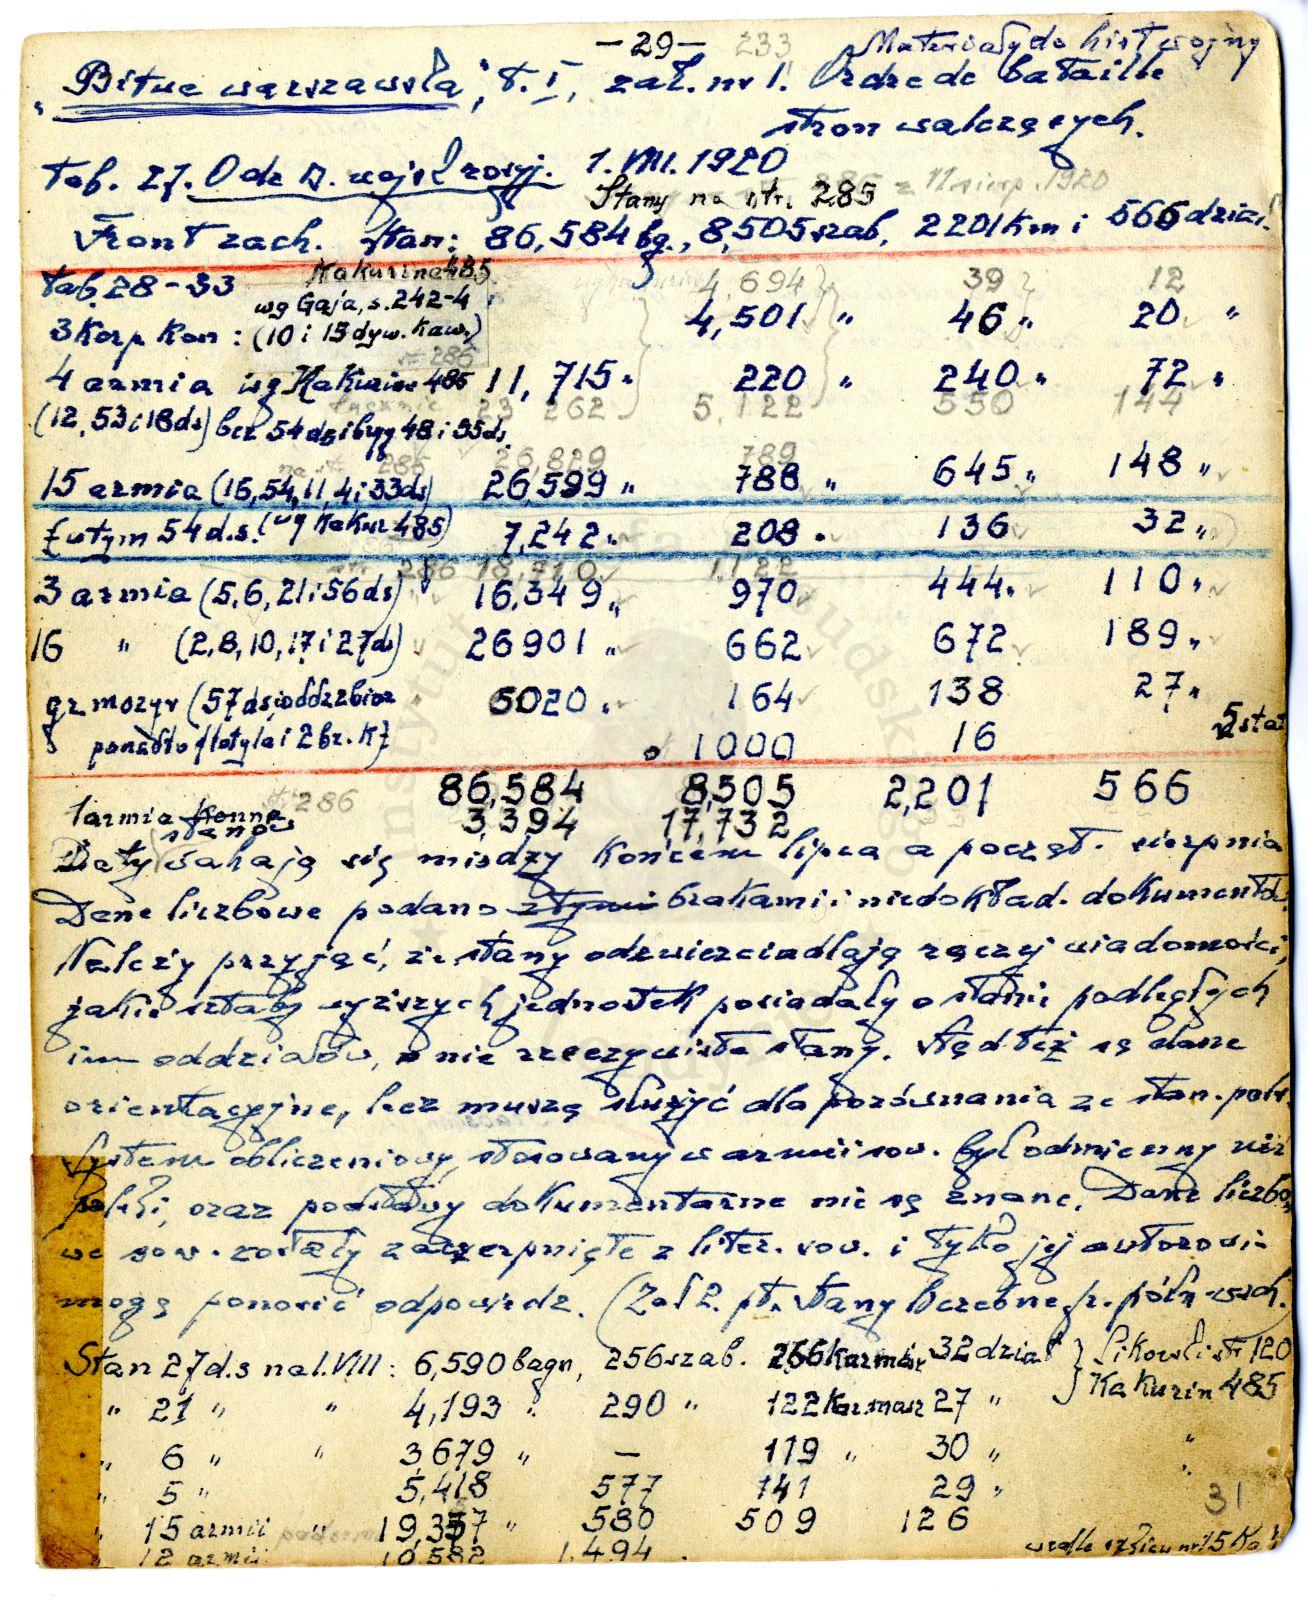 – 29 – 233 Materiały do hist wojny
„Bitwa warszawska", t. I, zał. nr 1. Ordre de bataille
stron walczących.
Tab. 27. O de B. wojsk rosyj. 1. VIII. 1920
Stany na str. 285 z 11 sierp. 1920
Front zach. stan: 86,584 bg., 8,505 szab, 2201 Km i 566 dział.
tab. 28-33 Kakurina 485 4,694 39 12
wg Gaja, s. 242-4
3 Korp Kon: (10 i 15 dyw. Kaw.) 4,501 „ 46 „ 20 „
286
4 armia wg Kakurina 485 11,715 „ 220 „ 240 „ 72 „
łącznie 23 262 5,122 550 144
(12, 53 i 18 ds) bez 54 ds i bryg 48 i 55 ds.
na str. 286 26,829 789
15 armia (16, 54, 11, 4 i 33 ds) 26,599 „ 788 „ 645 „ 148 „
z w tym 54 d.s. (wg Kakur 485) 7,242 „ 208 „ 136 32 „
str. 286 18,710 1,122
3 armia (5, 6, 21 i 56 ds) 16,349 „ 970 444 „ 110 „
16 „ (2, 8, 10, 17 i 27 ds) 26901 „ 662 672 189 „
gr mozyr (57 ds, oddz zbior 5020 „ 164 138 27 „
ponadto flotylla i 2 br. K} 1000 16 5 stat
86,584 8,505 2,201 566
1 armia Konna 286 3,394 17,732
stanów
Daty wahają się między Końcem lipca a począt. sierpnia
Dane liczbowe podano z tymi brakami i niedokład. dokumentów.
Należy przyjąć, że stany odzwierciadlają raczej wiadomości,
jakie sztaby wyższych jednostek posiadały o stanie podległych
im oddziałów, a nie rzeczywiste stany. Stąd też są dane
orientacyjne, lecz muszą służyć dla porównania ze stan. pols.
System obliczeniowy, stosowany w armii sow. był odmienny niż
polski, oraz podstawy dokumentarne nie są znane. Dane liczbo
we sow. zostały zaczerpnięte z liter. sow. i tylko jej autorowi-
mogą ponosić odpowiedz. (Zał 2. pt. Stany liczebne fr. półn-wsch.)
Stan 27 d.s na 1. VIII: 6,590 bagn, 256 szab. 266 karmasz 32 dział } Sikorski str 120
„ 21 „ „ 4,193 „ 290 „ 122 Karmasz 27 „ } Kakurin 485
„ 6 „ „ 3679 „ – 119 „ 30 „ „
„ 5 „ 5,418 577 141 29 „ „
„ 15 armii „ 19,357 „ 580 509 126 31
„ 12 armii 10,582 1,494 .